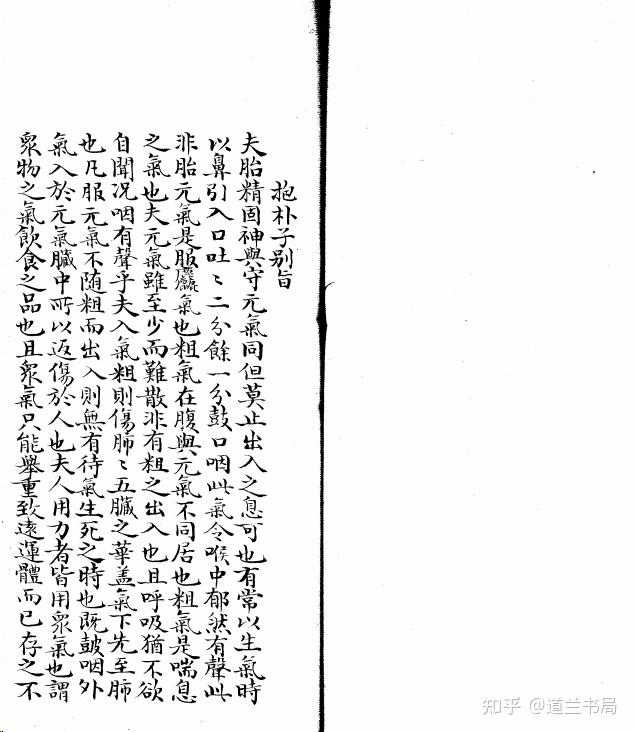 抱朴子別旨
夫胎精固神與守元氣同但莫止出入之息可也有常以生氣時
以鼻引入口吐〻二分餘一分鼓口咽此氣令喉中郁然有聲此
非胎元氣是服麤氣也粗氣在腹與元氣不同居也粗氣是喘息
之氣也夫元氣雖至少而難散非有粗之出入也且呼吸猶不欲
自聞况咽有聲乎夫入氣粗則傷肺〻五臟之華盖氣下先至肺
也凡服元氣不随粗而出入則無有待氣生死之時也既鼓咽外
氣入於元氣臟中所以返傷於人也夫人用力者皆用衆氣也謂
衆物之氣飲食之品也且衆氣只能舉重致遠運體而已存之不
知乎 @道兰书局